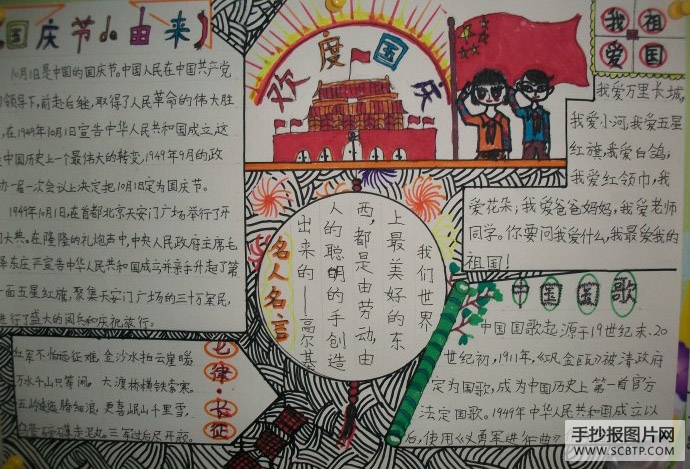 国庆节的由来
10月1日是中国的国庆节。中国人民在中国共产党
领导下,前赴后继,取得了人民革命的伟大胜
,在1949年10月1日宣告中华人民共和国成立这
中国历史上一个最伟大的转变,1949年9月的政
一届一次会议上决定把10月1日定为国庆节。
1949年10月1日,在首都北京天安门广场举行了开
大典。在隆隆的礼炮声中,中央人民政府主席毛
泽东庄严宣告中华人民共和国成立并亲手升起了第
一面五星红旗,聚集天安门广场的三十万军民,
进行了盛大的阅兵和庆祝旅行。
七律·长征
红军不怕远征难
金沙水拍云崖暖
万水千山只等闲。大渡桥横铁索寒。
五岭逶迤腾细浪,更喜岷山千里雪
三军过后尽开颜。
欢度国庆
名人名言
我们世界
上最美好的东
西,都是由劳动,由
人的聪明的手创造
出来的——高尔基
我爱祖国
我爱万里长城,
我爱小河,我爱五星
红旗,我爱白鸽;
我爱红领巾,我
爱花朵;我爱爸爸妈妈,我爱老师
同学。你要问我爱什么,我最爱我的
祖国!
中国国歌
中国国歌起源于19世纪末、20
世纪初,1911年,《巩金瓯》被清政府
定为国歌,成为中国历史上第一首官方
法定国歌。1949年中华人民共和国成立以
后,使用《义勇军进行曲》
手抄报图片网
WWW.SCBTP.COM